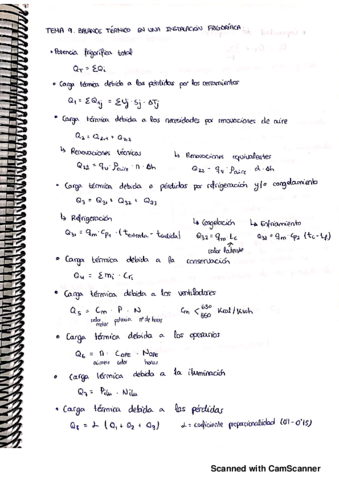 TEMA 9. BALANCE TÉRMICO EN UNA INSTALACIÓN FRIGORÍFICA
• Potencia frigorífica total
QT = ΣQi
• Carga térmica debido a las pérdidas por los cerramientos
Q1 = ΣQ1j = ΣUj · Sj · ΔTj
• Carga térmica debido a las necesidades por renovaciones de aire
Q2 = Q21 + Q22
↳ Renovaciones técnicas
Q21 = qv · ρaire · n · Δh
↳ Renovaciones equivalentes
Q22 = qv · ρaire · d · Δh
• Carga térmica debida a pérdidas por refrigeración y/o congelamiento
Q3 = Q31 + Q32 + Q33
↳ Refrigeración
Q31 = qm · cp1 · (tentrada - tsalida)
↳ Congelación
Q32 = qm · Lc
calor latente
↳ Enfriamiento
Q33 = qm · cp2 (tc - tf)
• Carga térmica debida a la conservación
Q4 = Σmi · Cri
• Carga térmica debida a los ventiladores
Q5 = Cm · P · N
calor motor potencia nº de horas
Cm < 630 860 Kcal/Kwh
• Carga térmica debida a los operarios
Q6 = n · COPE · NOPE
número calor horas
• Carga térmica debida a la iluminación
Q7 = Pilu · Nilu
• Carga térmica debida a las pérdidas
Q8 = α (Q1 + Q2 + Q3)
α = coeficiente proporcionalidad (0'1-0'15)
Scanned with CamScanner